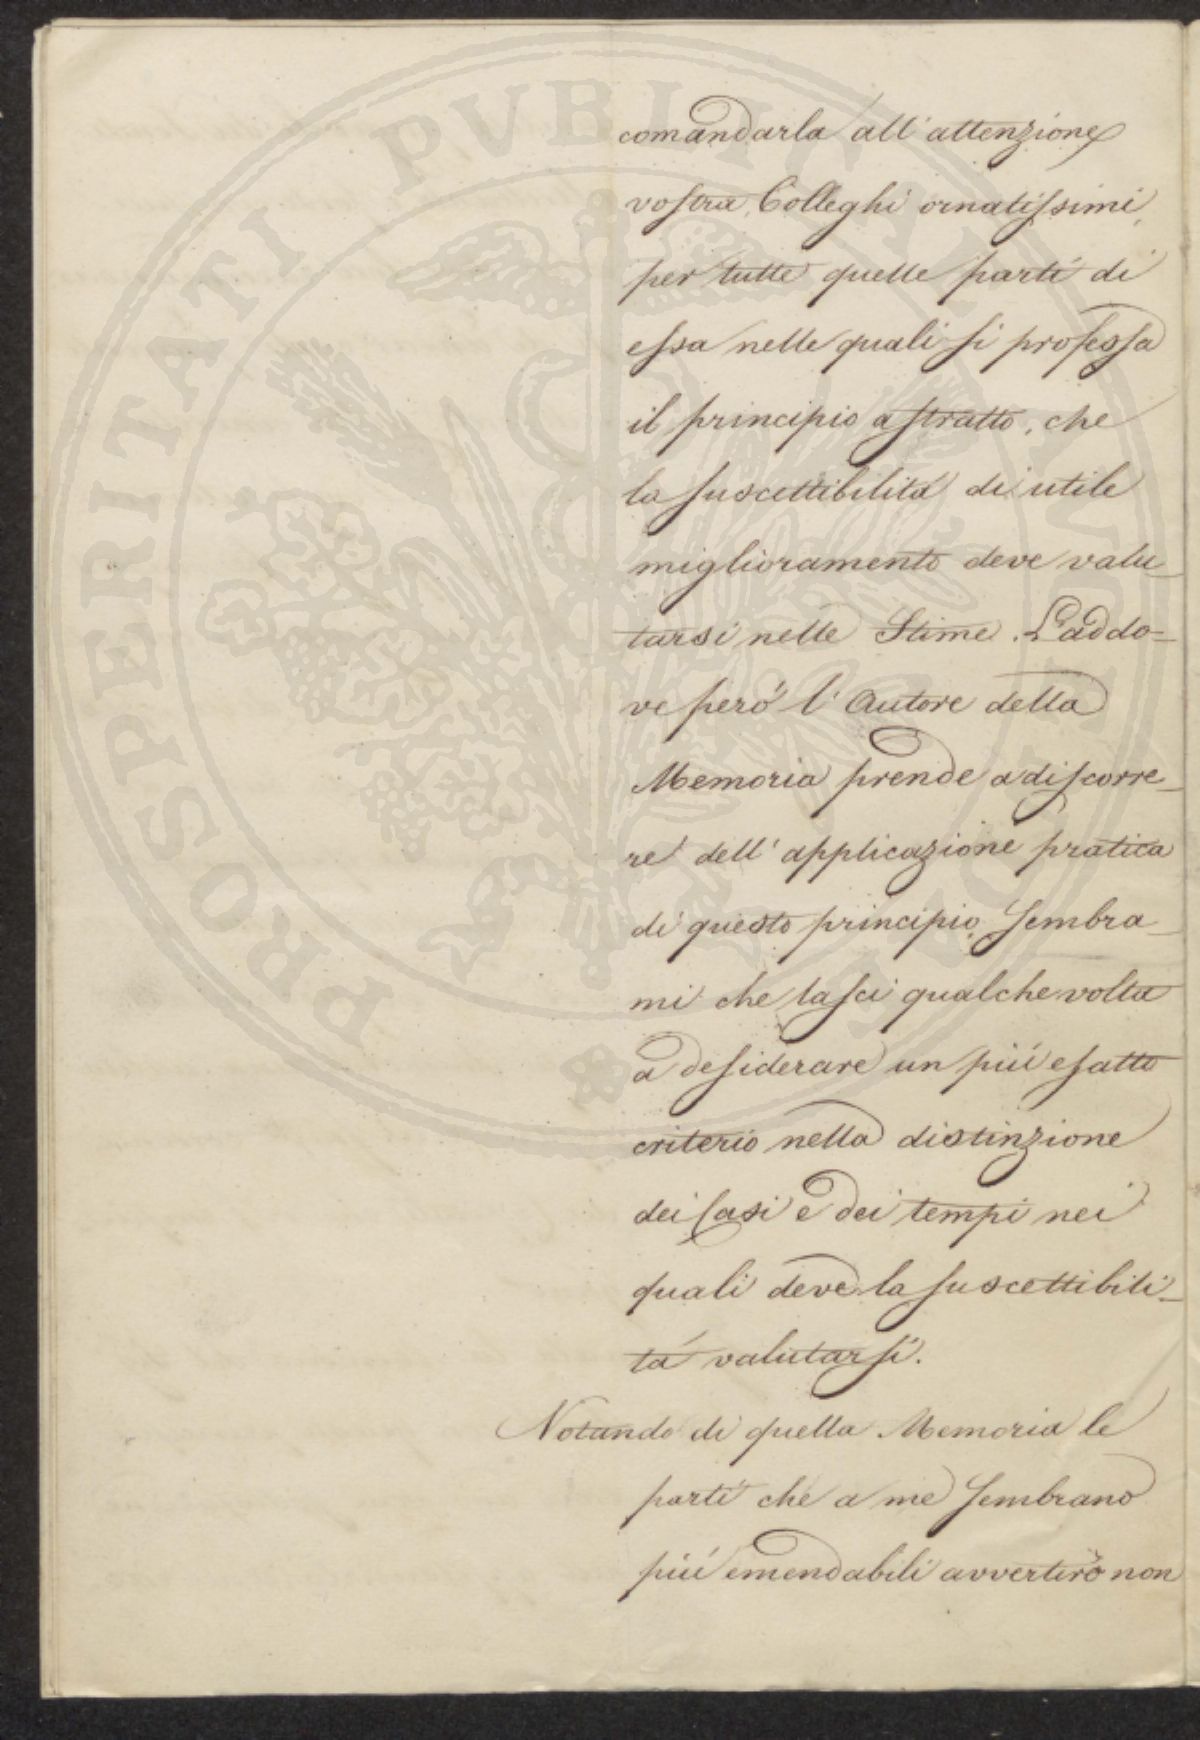 comandarla all'attenzione
vostra, Colleghi ornatissimi,
per tutte quelle parti di
essa nelle quali si professa
il principio astratto, che
la suscettibilità di utile
miglioramento deve valu-
tarsi nelle Stime. Laddo=
ve però l'Autore della
Memoria prende a discorre-
re dell'applicazione pratica
di questo principio, sembra-
mi che lasci qualche volta
a desiderare un più esatto
criterio nella distinzione
dei Casi e dei tempi nei
quali deve la suscettibili-
tà valutarsi.
Notando di quella Memoria le
parti che a me sembrano
più emendabili avvertirò non
PROSPERITATI PVBLICAE AVGENDAE